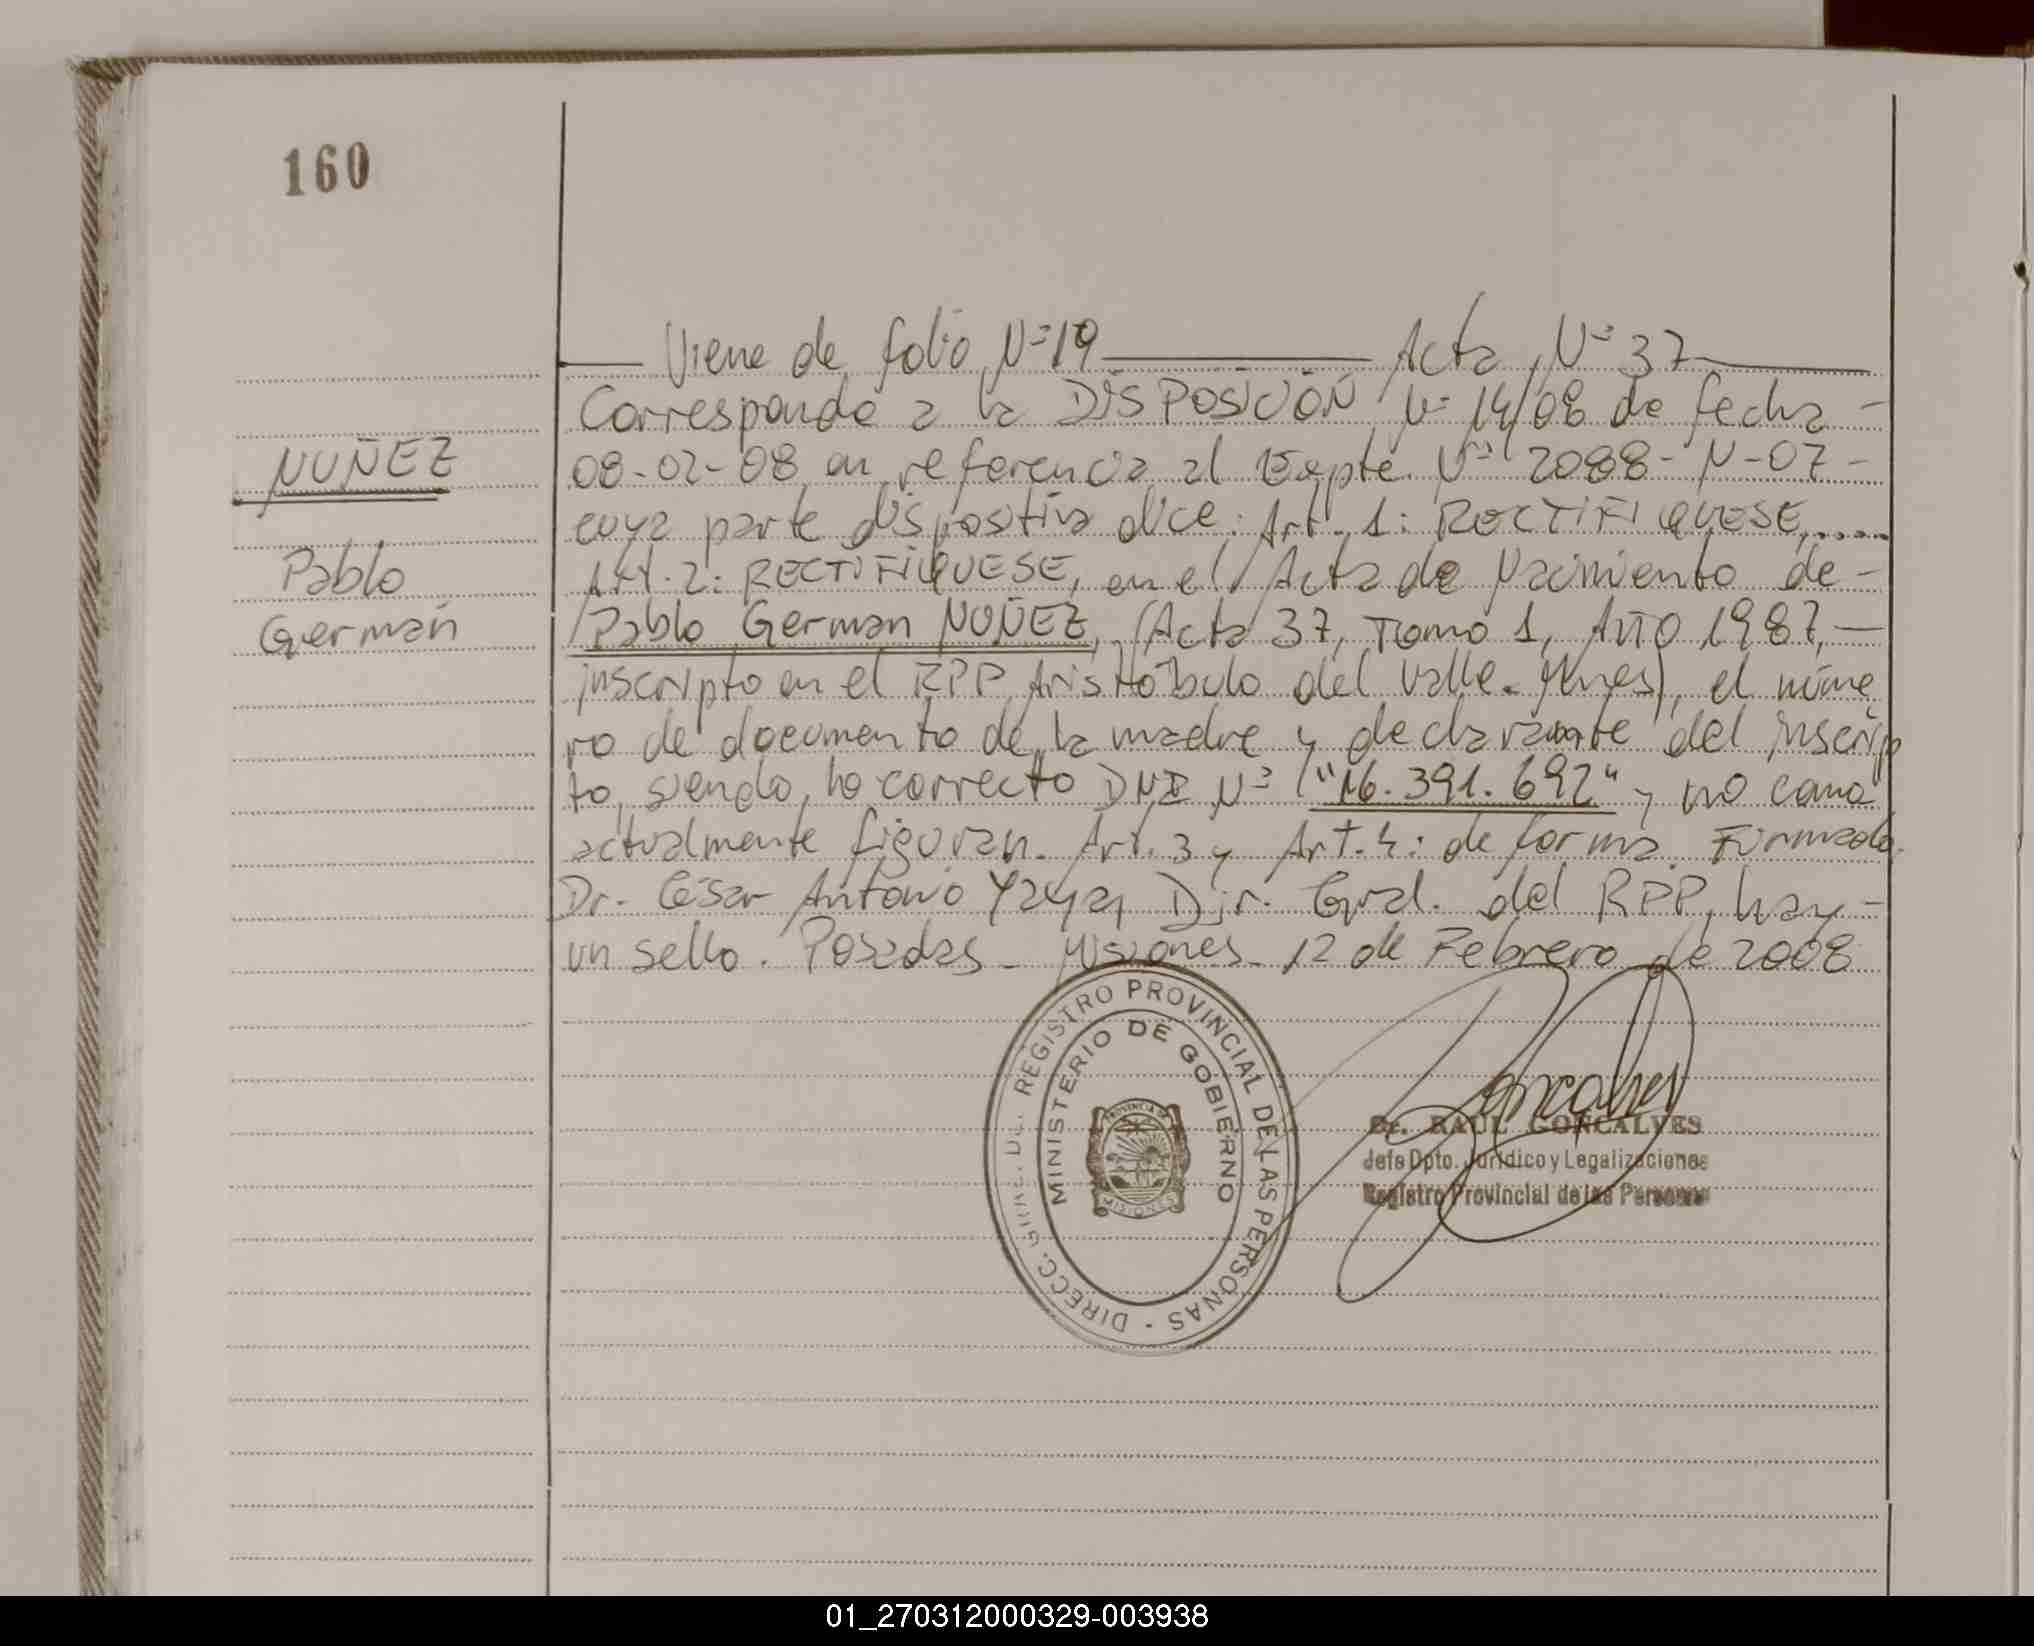 160
—— Viene de folio Nº 19 ———— Acta Nº 37 ————
Corresponde a la DISPOSICIÓN Nº 14/08 de fecha -
NUÑEZ
08-02-08 en referencia al Expte. Nº 2088-N-07-
cuya parte dispositiva dice: Art. 1: RECTIFIQUESE,.....
Pablo
Art. 2: RECTIFIQUESE, en el Acta de Nacimiento de -
Germán
Pablo German NUÑEZ, (Acta 37, Tomo 1, AÑO 1987, —
inscripto en el RPP Aristóbulo del Valle. Mnes), el núme
ro de documento de la madre y declarante del inscrip
to, siendo lo correcto DNI Nº "16.391.692" y no como
actualmente figuran. Art. 3 y Art. 4: de forma. Firmado
Dr. César Antonio Yaya, Dir. Gral. del RPP, hay -
un sello. Posadas - Misiones - 12 de Febrero de 2008
DIRECC. GRAL. DEL REGISTRO PROVINCIAL DE LAS PERSONAS -
MINISTERIO DE GOBIERNO
PROVINCIA DE
MISIONES
Goncalves
Dr. RAUL GONCALVES
Jefe Dpto. Jurídico y Legalizaciones
Registro Provincial de las Personas
01_270312000329-003938